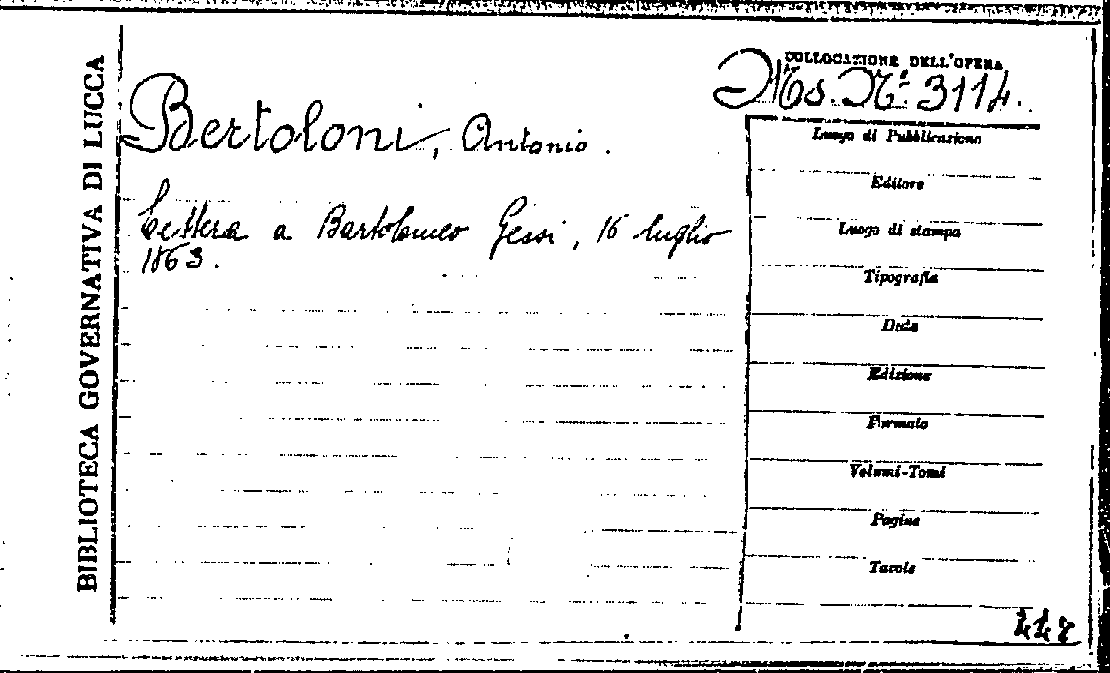 BIBLIOTECA GOVERNATIVA DI LUCCA
COLLOCAZIONE DELL'OPERA
Ms. N.º 3114.
Bertoloni, Antonio.
Lettera a Bartolomeo Gessi, 16 luglio
1863.
Luogo di Pubblicazione
Editore
Luogo di stampa
Tipografia
Data
Edizione
Formato
Volumi-Tomi
Pagine
Tavole